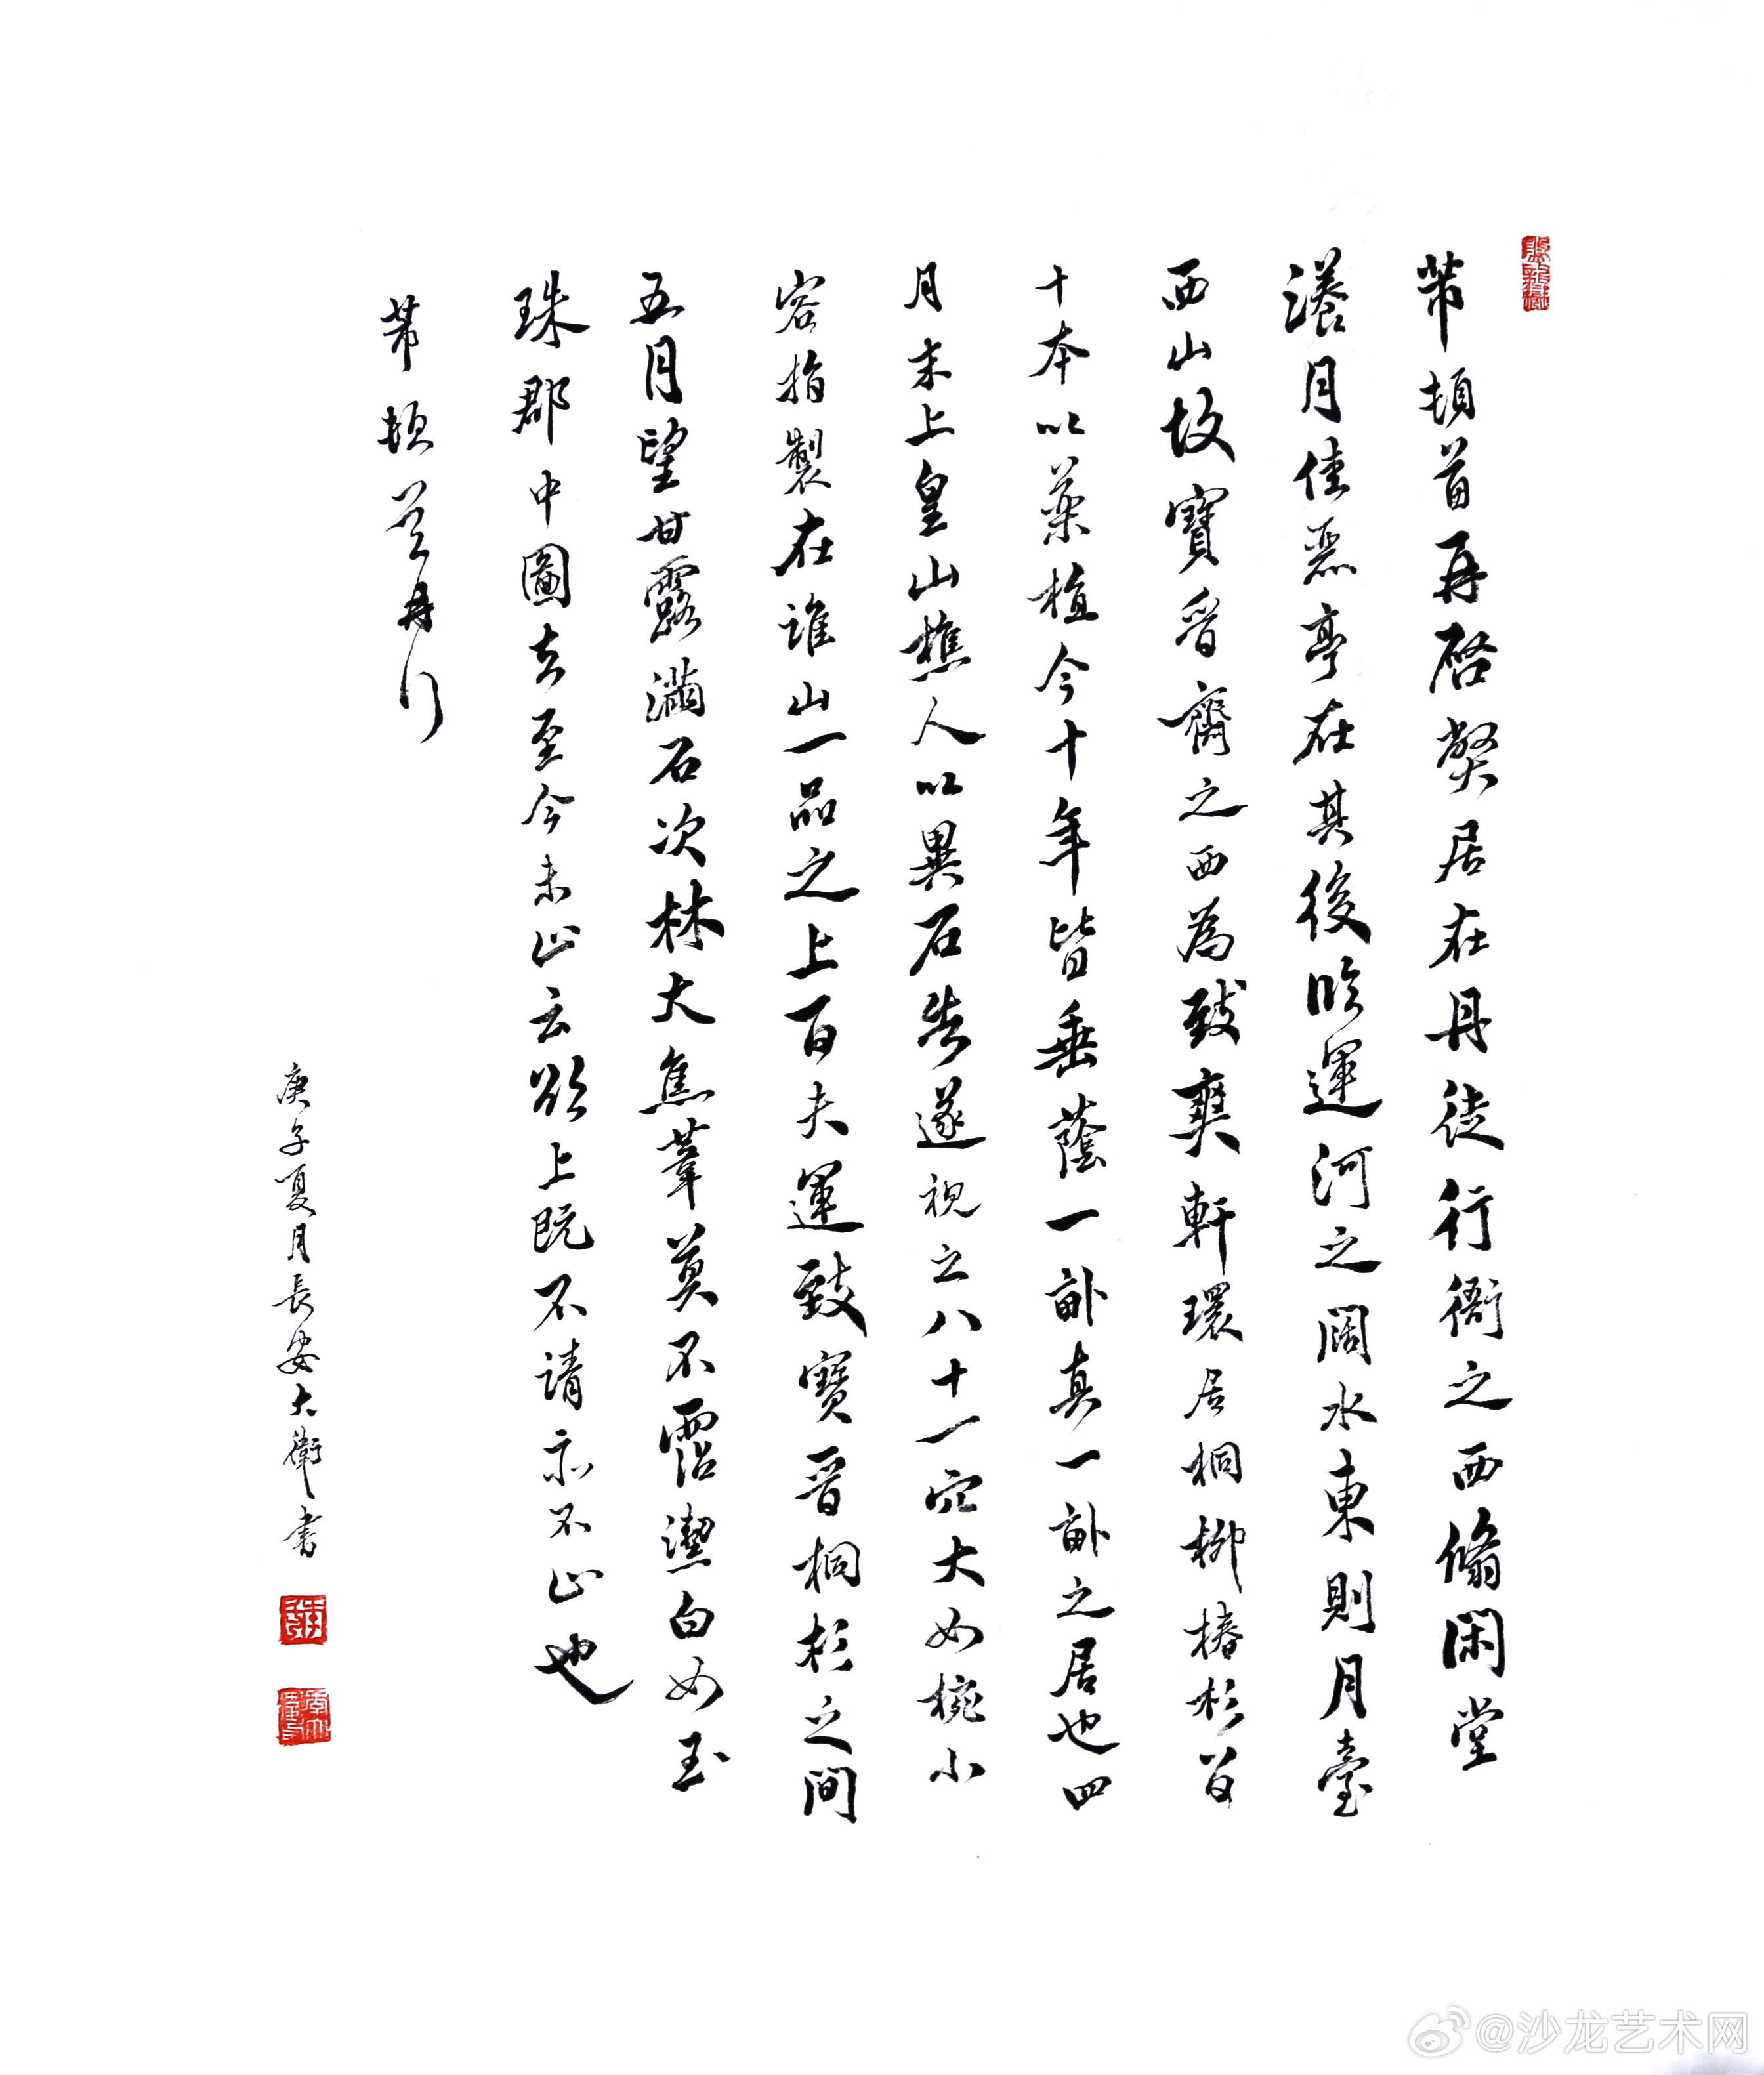 芾頓首再啓弊居在丹徒行衙之西脩閑堂
漾月佳麗亭在其後臨運河之闊水東則月臺
西山故寶晉齋之西為致爽軒環居桐柳椿杉百
十本以藥植今十年皆垂蔭一畝真一畝之居也四
月末上皇山樵人以異石告遂視之八十一穴大如椀小
容指製在誰山一品之上百夫運致寶晉桐杉之間
五月望甘露滿石次林大焦葦莫不霑潔白如玉
珠郡中圖去至今未止云欲上既不請亦不止也
芾頓首再拜
庚子夏月長安大衛書
@沙龙艺术网